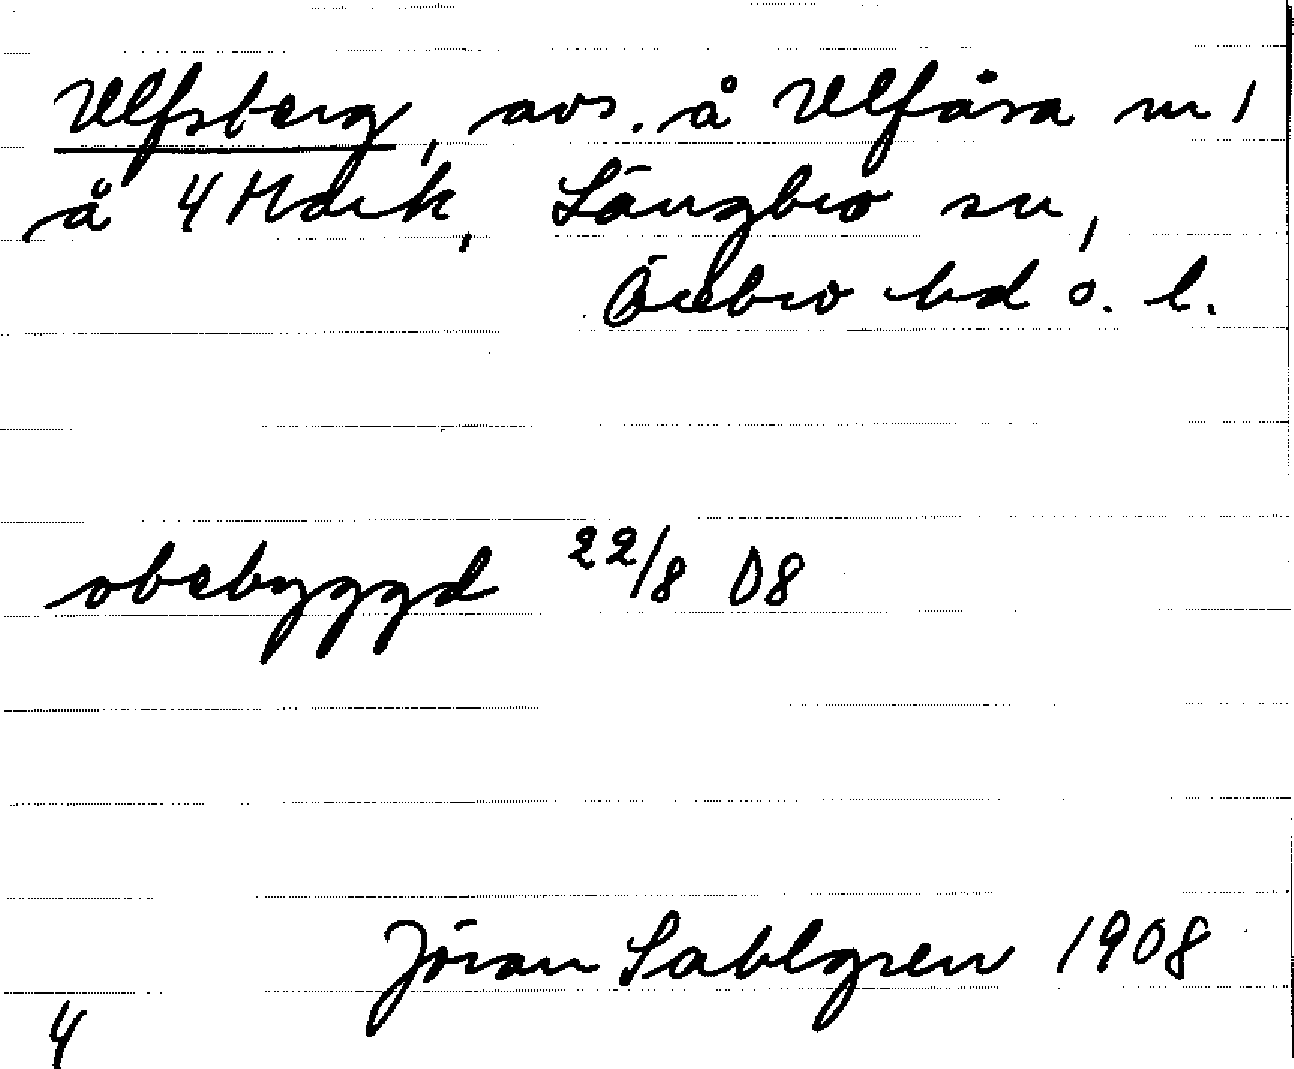 Ulfsberg, avs. å Ulfåsa nr 1
å 4 Mark, Längbro sn,
Örebro hd o. l.
obebyggd 22/8 08
Jöran Sahlgren 1908
4